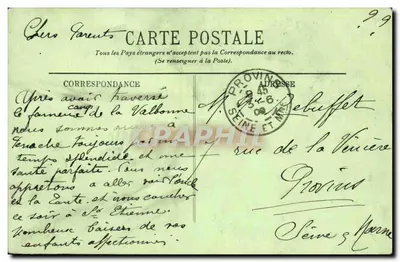 Chers Parents
99
CARTE POSTALE
Tous les Pays étrangers n'acceptent pas la Correspondance au recto.
(Se renseigner à la Poste).
CORRESPONDANCE
ADRESSE
PROVINS
SEINE ET MNE
Après avoir traversé
le fameux camp de la Valbonne
nous sommes à
toujours
temps splendide et une
santé parfaite. Tous nous
apprêtons a aller voir l'oncle
et la Tante, et nous coucher
ce soir à St Etienne
Nombreux baisers de vos
enfants affectionnés
M. Lebuffet
rue de la
Provins
Seine & Marne
CARTHAPHILIE